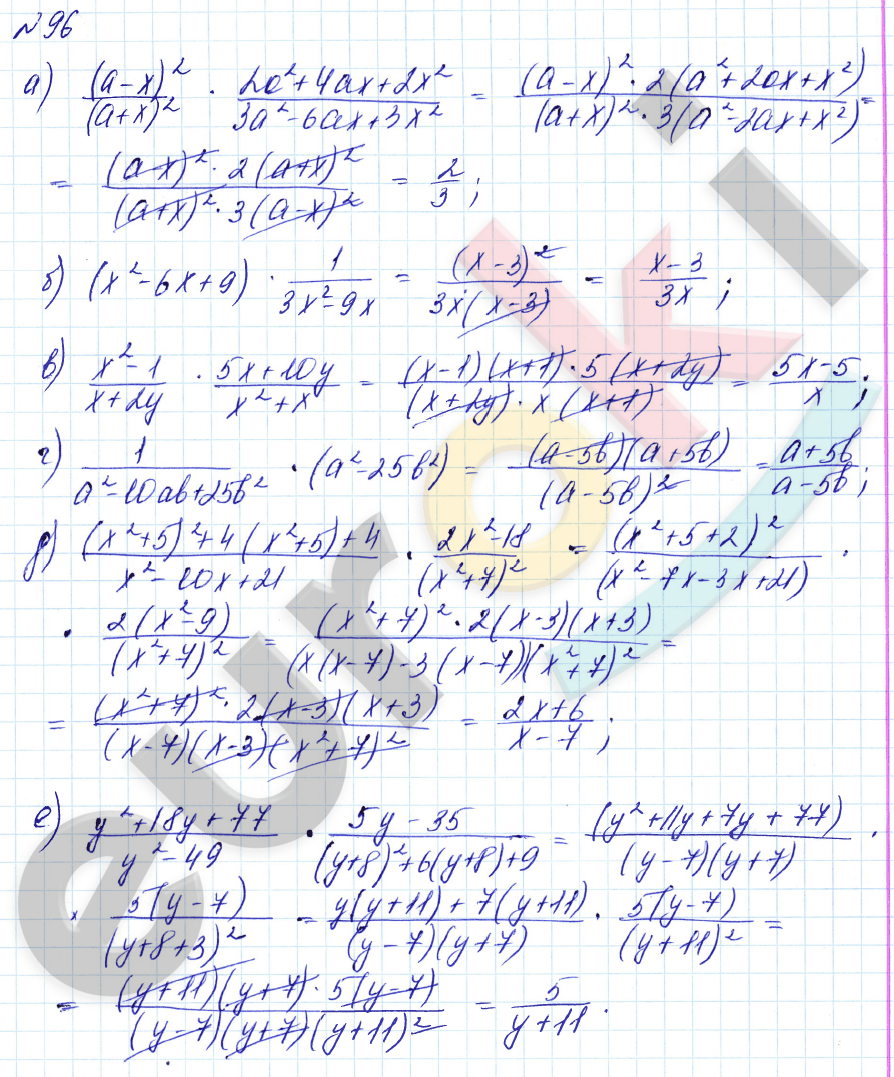 №96
а) (a-x)²/(a+x)² · (2a²+4ax+2x²)/(3a²-6ax+3x²) = ((a-x)²·2(a²+2ax+x²))/((a+x)²·3(a²-2ax+x²)) =
= ((a-x)²·2(a+x)²)/((a+x)²·3(a-x)²) = 2/3;
б) (x²-6x+9) · 1/(3x²-9x) = (x-3)²/(3x(x-3)) = (x-3)/(3x);
в) (x²-1)/(x+2y) · (5x+10y)/(x²+x) = ((x-1)(x+1)·5(x+2y))/((x+2y)·x(x+1)) = (5x-5)/x;
г) 1/(a²-10ab+25b²) · (a²-25b²) = ((a-5b)(a+5b))/(a-5b)² = (a+5b)/(a-5b);
д) ((x²+5)²+4(x²+5)+4)/(x²-10x+21) · (2x²-18)/(x²+7)² = (x²+5+2)²/(x²-7x-3x+21) ·
· 2(x²-9)/(x²+7)² = ((x²+7)²·2(x-3)(x+3))/((x(x-7)-3(x-7))(x²+7)²) =
= ((x²+7)²·2(x-3)(x+3))/((x-7)(x-3)(x²+7)²) = (2x+6)/(x-7);
е) (y²+18y+77)/(y²-49) · (5y-35)/((y+8)²+6(y+8)+9) = (y²+11y+7y+77)/((y-7)(y+7)) ·
× 5(y-7)/(y+8+3)² = (y(y+11)+7(y+11))/((y-7)(y+7)) · 5(y-7)/(y+11)² =
= ((y+11)(y+7)·5(y-7))/((y-7)(y+7)(y+11)²) = 5/(y+11).
euroki